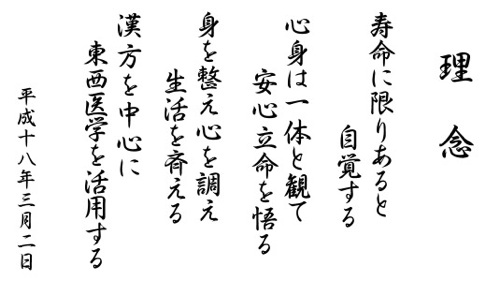 理念
寿命に限りあると
自覚する
心身は一体と観て
安心立命を悟る
身を整え心を調え
生活を斉える
漢方を中心に
東西医学を活用する
平成十八年三月二日